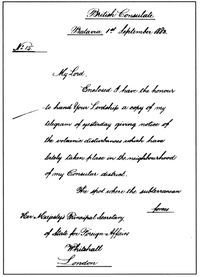 British Consulate
Batavia 1st September 1883.
No. 15.
My Lord,
Enclosed I have the honour
to hand Your Lordship a copy of my
telegram of yesterday giving notice of
the volcanic disturbances which have
lately taken place in the neighbourhood
of my Consular district.
The spot where the subterranean
forces
Her Majesty's Principal Secretary
of State for Foreign Affairs
Whitehall
London